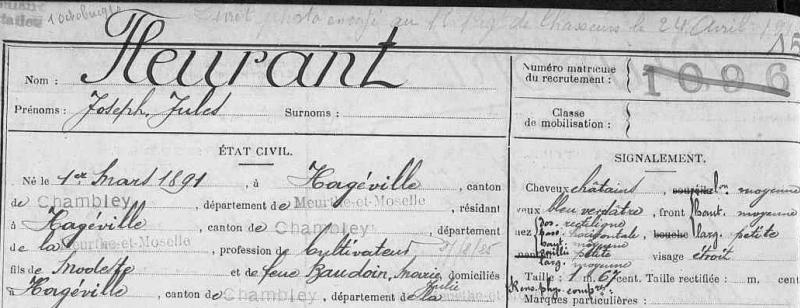 1 Octobre 191
Livret photo envoyé au 1r Rég de Chasseurs le 24 Avril 19
Nom : Fleurant
Prénoms : Joseph, Jules Surnoms :
Numéro matricule
du recrutement : 1096
Classe
de mobilisation :
ÉTAT CIVIL.
Né le 1er Mars 1891, à Hagéville, canton
de Chambley, département de Meurthe-et-Moselle, résidant
à Hagéville, canton de Chambley, département
de la Meurthe-et-Moselle, profession de Cultivateur
fils de Modeste et de feue Baudoin, Marie, domiciliés
Julie
Hagéville, canton de Chambley, département de la
SIGNALEMENT.
Cheveux châtains moyenne
yeux bleu verdâtre, front haut. moyenne
dos. rectiligne
nez bas. horizontale bouche larg. petite
haut. moyenne
saillie petite visage étroit
larg. moyenne
Taille : 1 m. 67 cent. Taille rectifiée : m. cent
Rens. phy. compl.
Marques particulières :